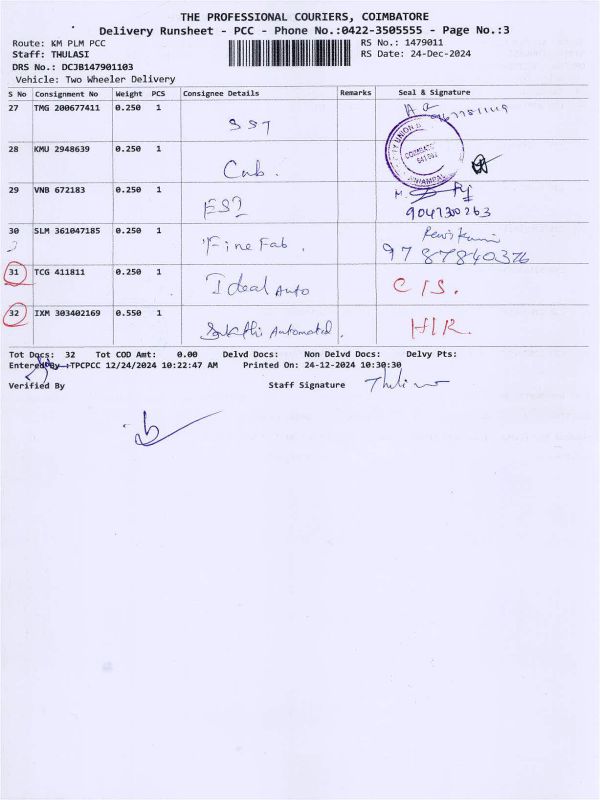 THE PROFESSIONAL COURIERS, COIMBATORE
Delivery Runsheet - PCC - Phone No.:0422-3505555 - Page No.:3
Route: KM PLM PCC
RS No.: 1479011
Staff: THULASI
RS Date: 24-Dec-2024
DRS No.: DCJB147901103
Vehicle: Two Wheeler Delivery
S No Consignment No Weight PCS Consignee Details Remarks Seal & Signature
27 TMG 200677411 0.250 1 SST
28 KMU 2948639 0.250 1 Cub.
CITY UNION
COIMBATORE
29 VNB 672183 0.250 1
9047300263
30 SLM 361047185 0.250 1 Fine Fab.
9787840376
31 TCG 411811 0.250 1 Ideal Auto C/S.
32 IXM 303402169 0.550 1 Sakthi Automated. H/R.
Tot Docs: 32 Tot COD Amt: 0.00 Delvd Docs: Non Delvd Docs: Delvy Pts:
Entered By :TPCPCC 12/24/2024 10:22:47 AM Printed On: 24-12-2024 10:30:30
Verified By Staff Signature